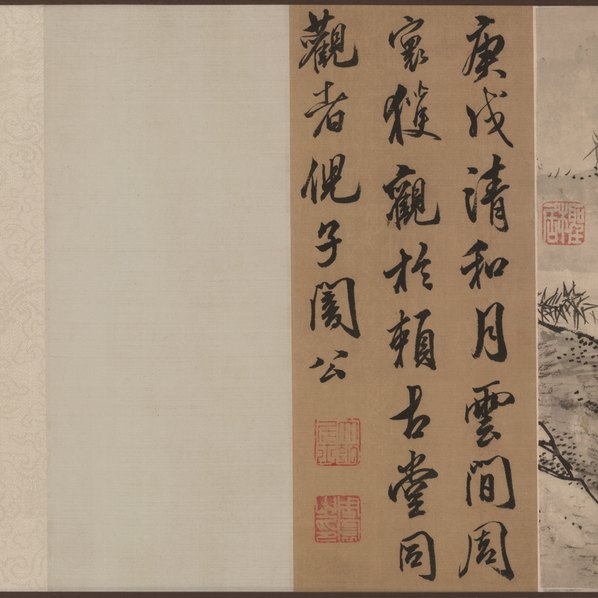 庚戌清和月雲間周
裳獲觀於賴古堂同
觀者倪子闇公